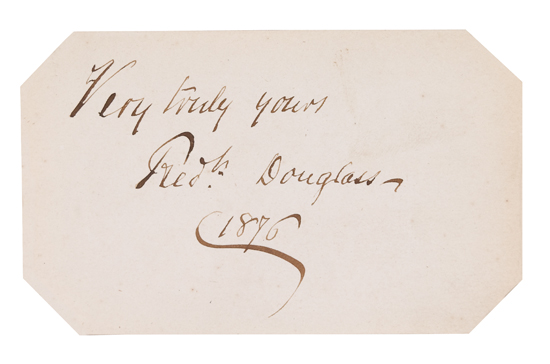 Very truly yours
Fredk. Douglass
1876